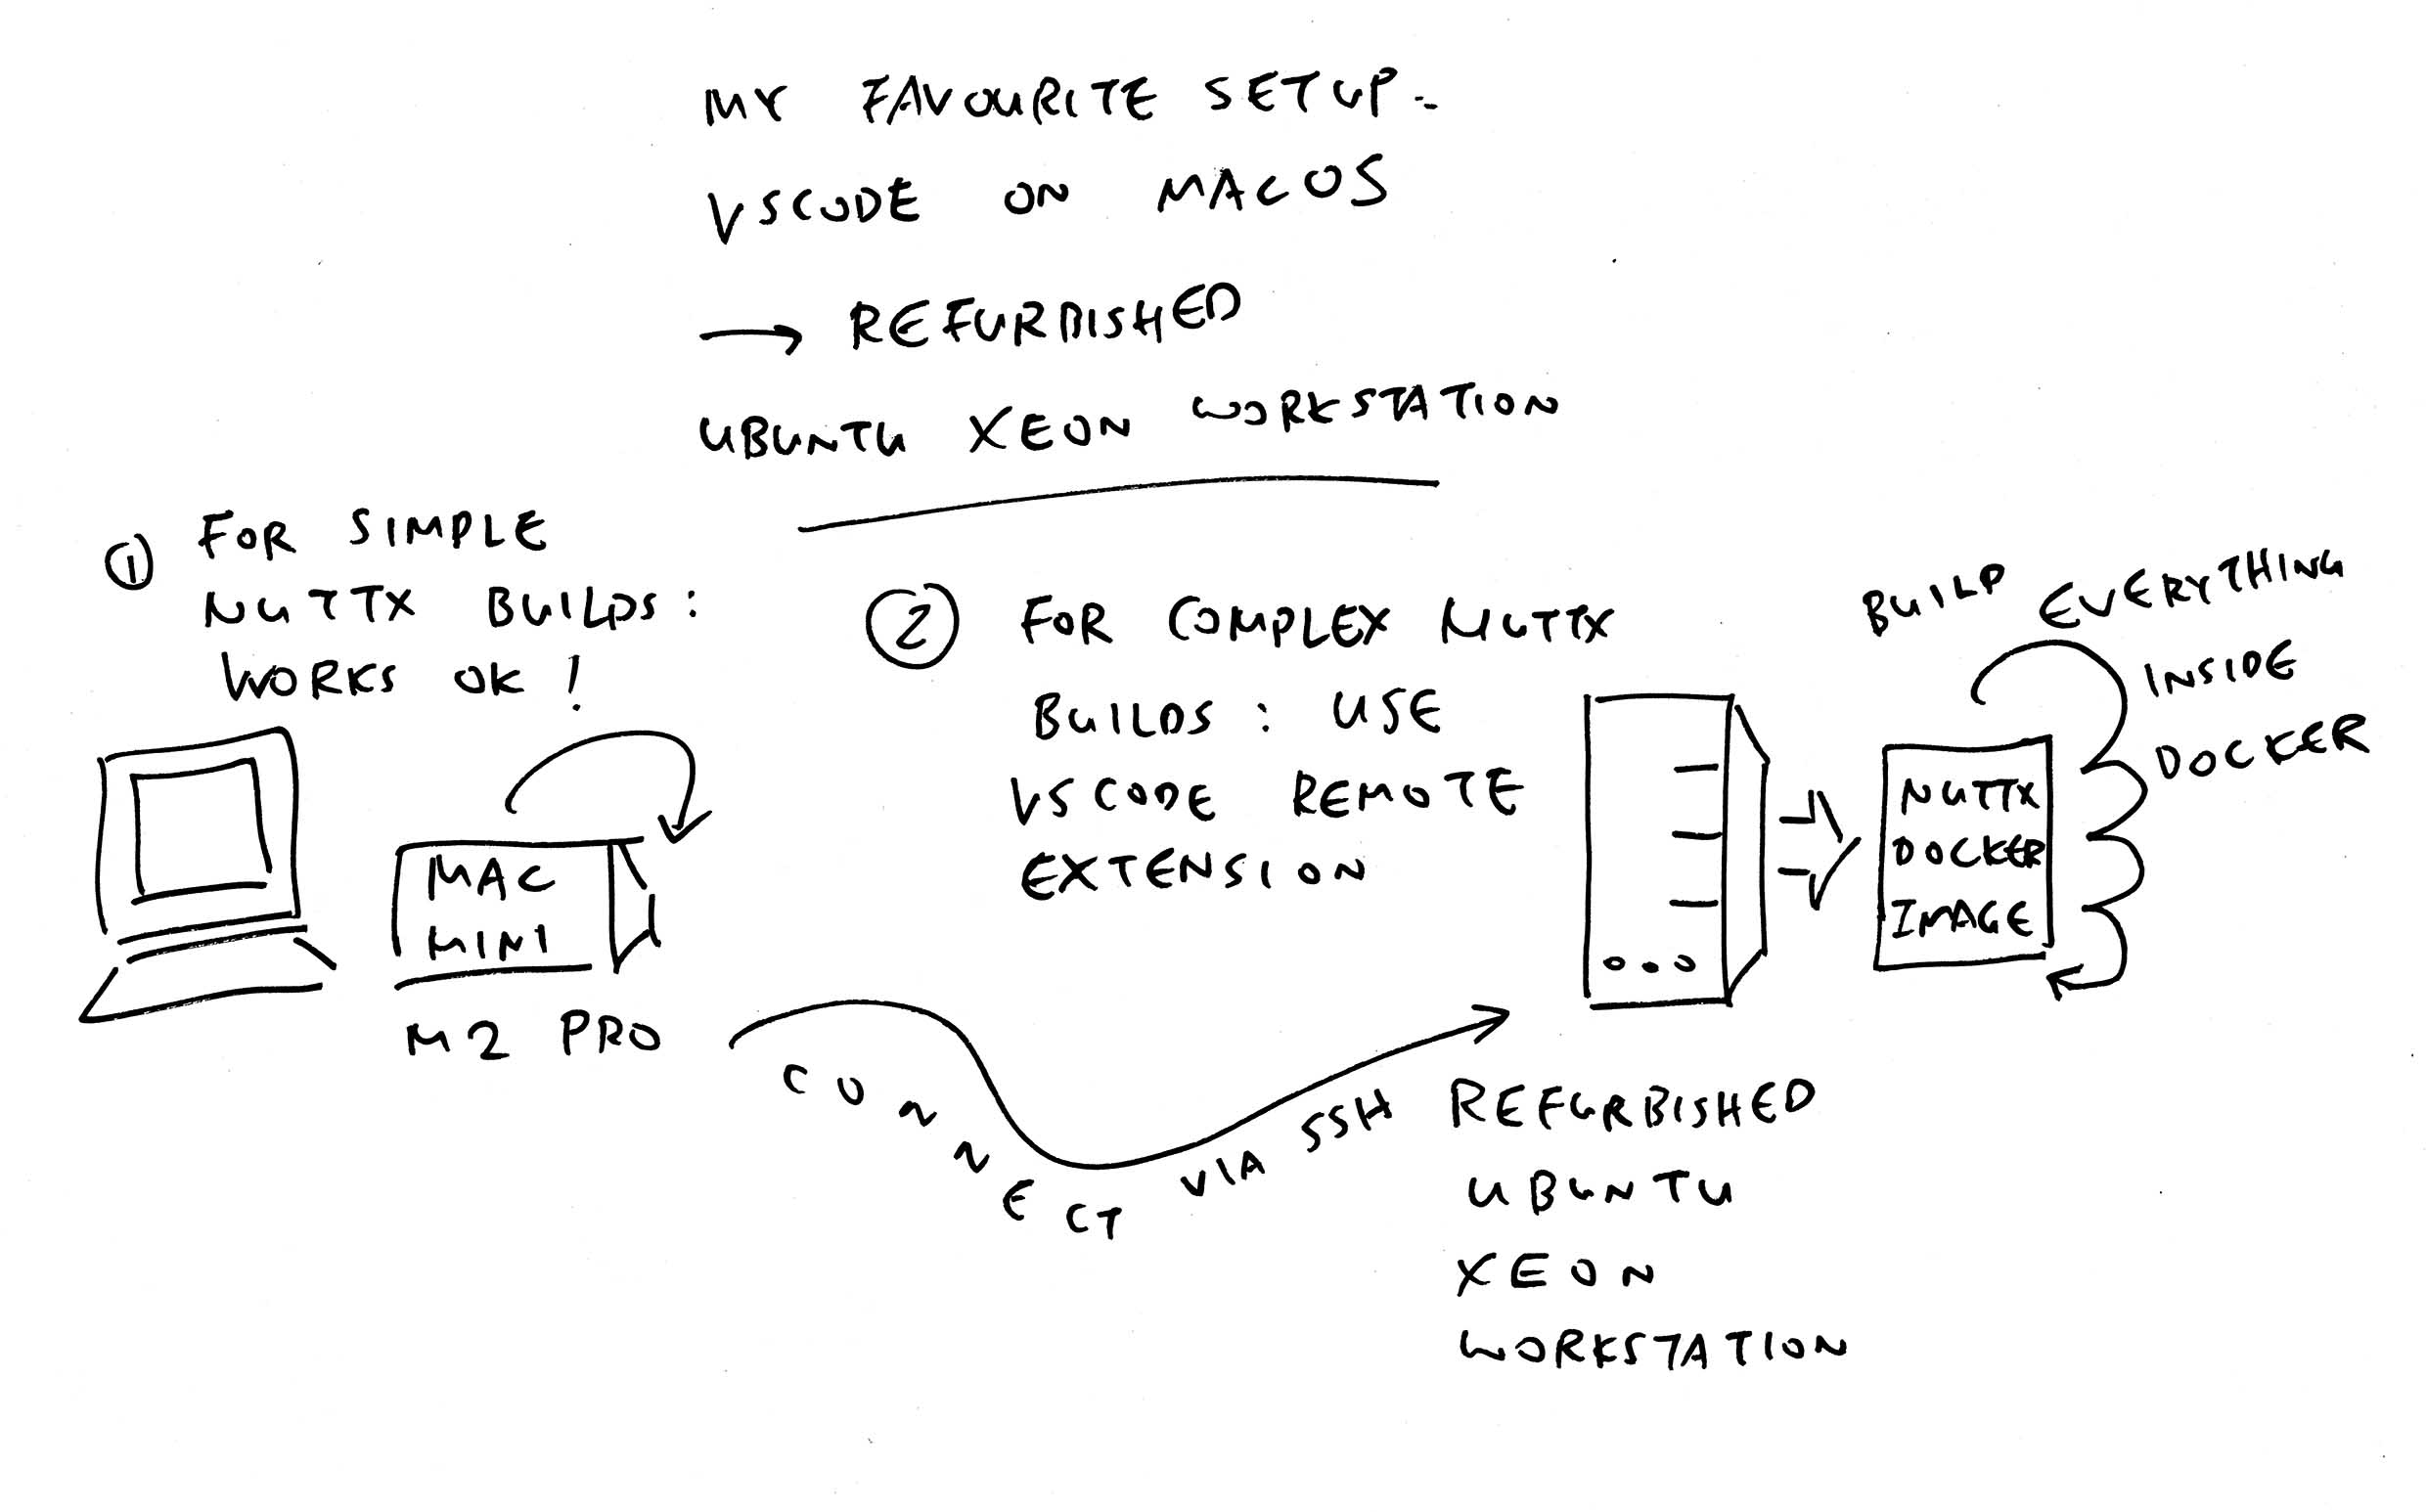 MY FAVOURITE SETUP-
VSCODE ON MACOS
→ REFURBISHED
UBUNTU XEON WORKSTATION
① FOR SIMPLE
NUTTX BUILDS:
WORKS OK!
MAC
MINI
M2 PRO
② FOR COMPLEX NUTTX
BUILDS: USE
VSCODE REMOTE
EXTENSION
CONNECT VIA SSH
REFURBISHED
UBUNTU
XEON
WORKSTATION
BUILD EVERYTHING
INSIDE
DOCKER
NUTTX
DOCKER
IMAGE